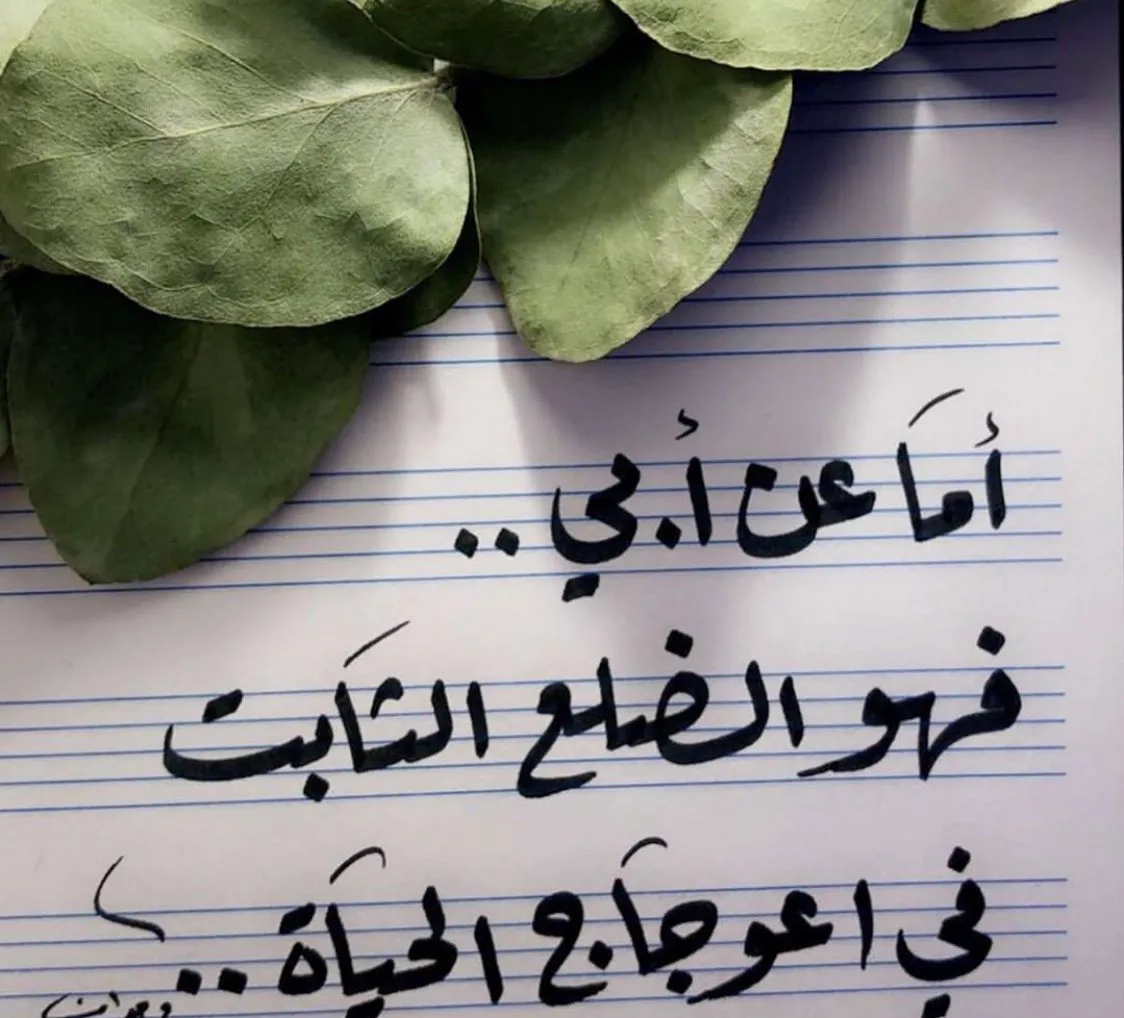 أما عن أبي ..
فهو الضلع الثابت
في اعوجاج الحياة ..